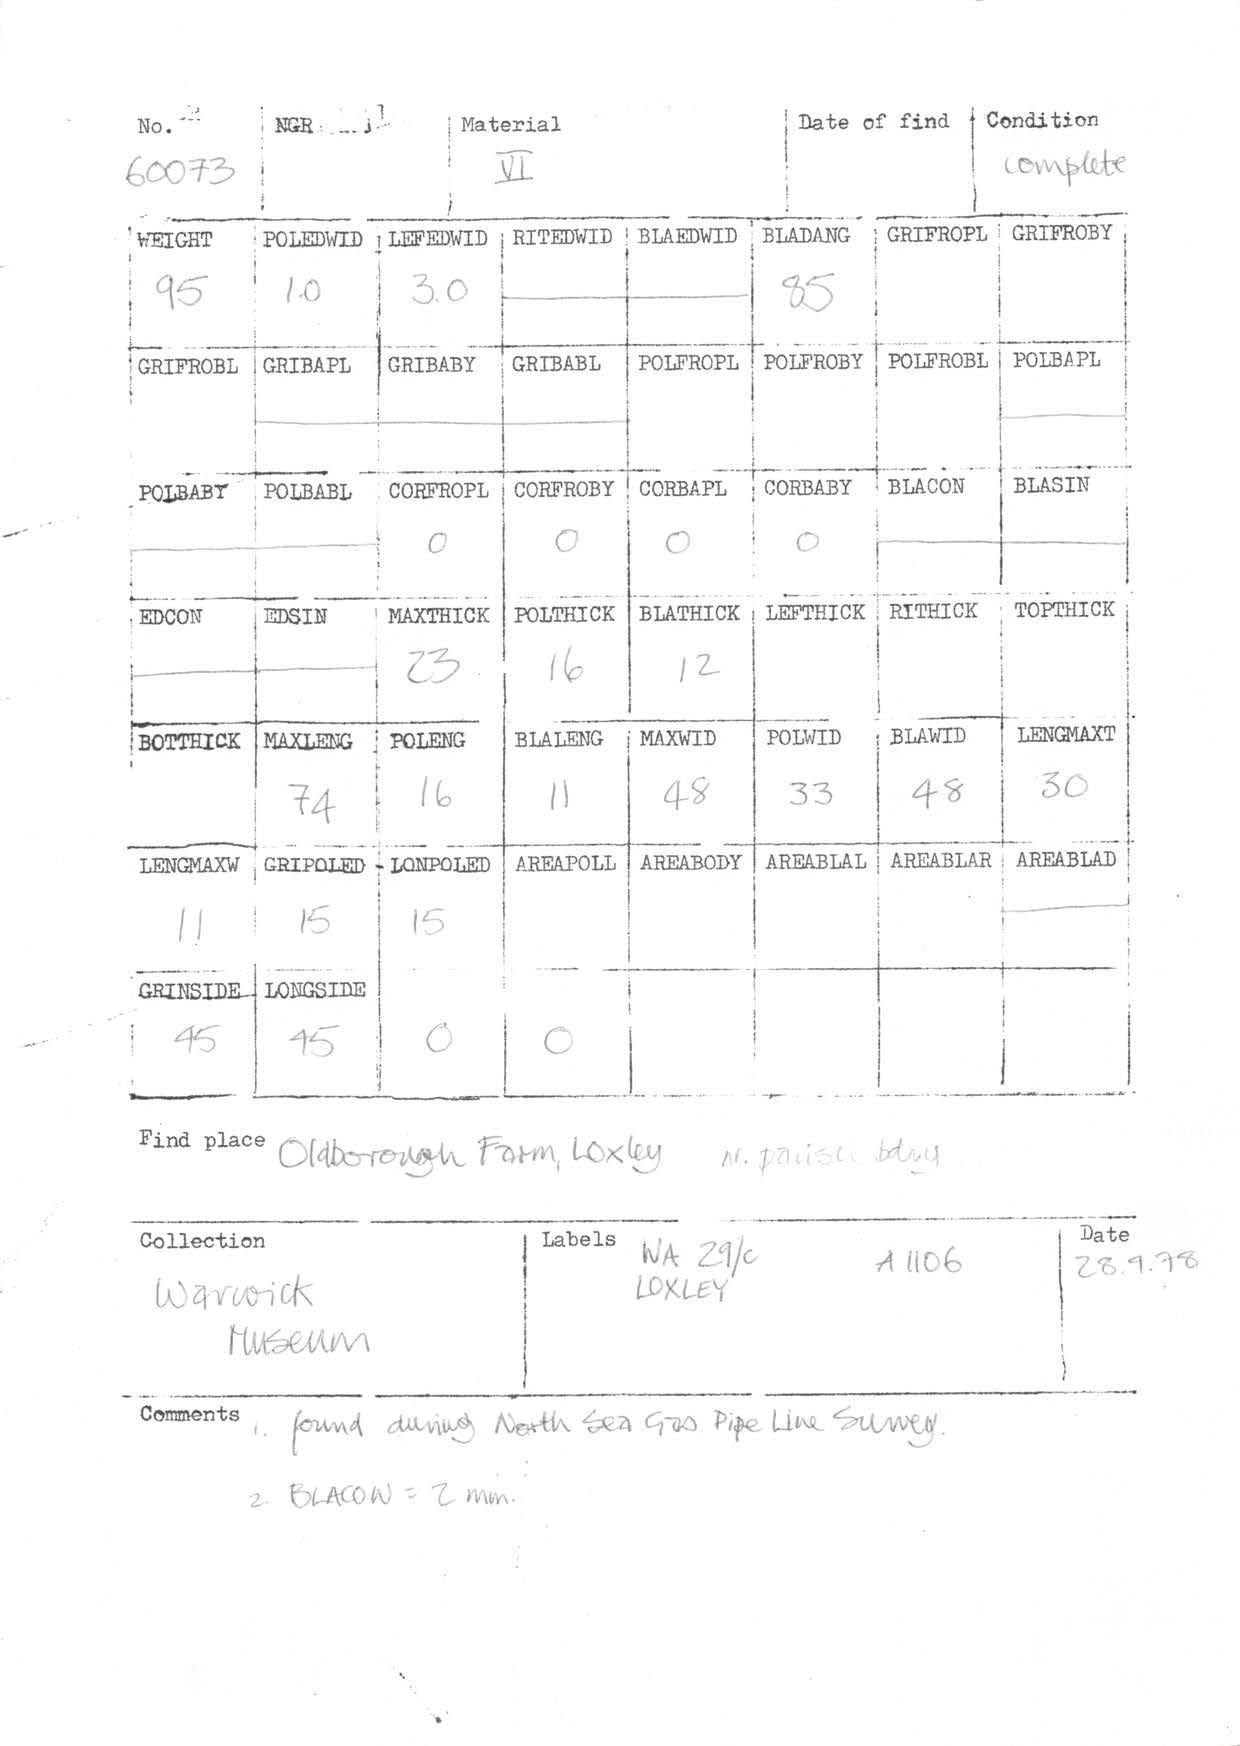 No. NGR Material Date of find Condition
60073 VI complete
WEIGHT POLEDWID LEFEDWID RITEDWID BLAEDWID BLADANG GRIFROPL GRIFROBY
95 1.0 3.0 85
GRIFROBL GRIBAPL GRIBABY GRIBABL POLFROPL POLFROBY POLFROBL POLBAPL
POLBABY POLBABL CORFROPL CORFROBY CORBAPL CORBABY BLACON BLASIN
0 0 0 0
EDCON EDSIN MAXTHICK POLTHICK BLATHICK LEFTHICK RITHICK TOPTHICK
23 16 12
BOTTHICK MAXLENG POLENG BLALENG MAXWID POLWID BLAWID LENGMAXT
74 16 11 48 33 48 30
LENGMAXW GRIPOLED LONPOLED AREAPOLL AREABODY AREABLAL AREABLAR AREABLAD
11 15 15
GRINSIDE LONGSIDE
45 45 0 0
Find place Oldborough Farm, Loxley nr. parish bdry
Collection Labels WA 29/c A 1106 Date
LOXLEY 28.9.78
Warwick
Museum
Comments 1. found during North Sea Gas Pipe Line Survey.
2. BLACON = 2 mm.